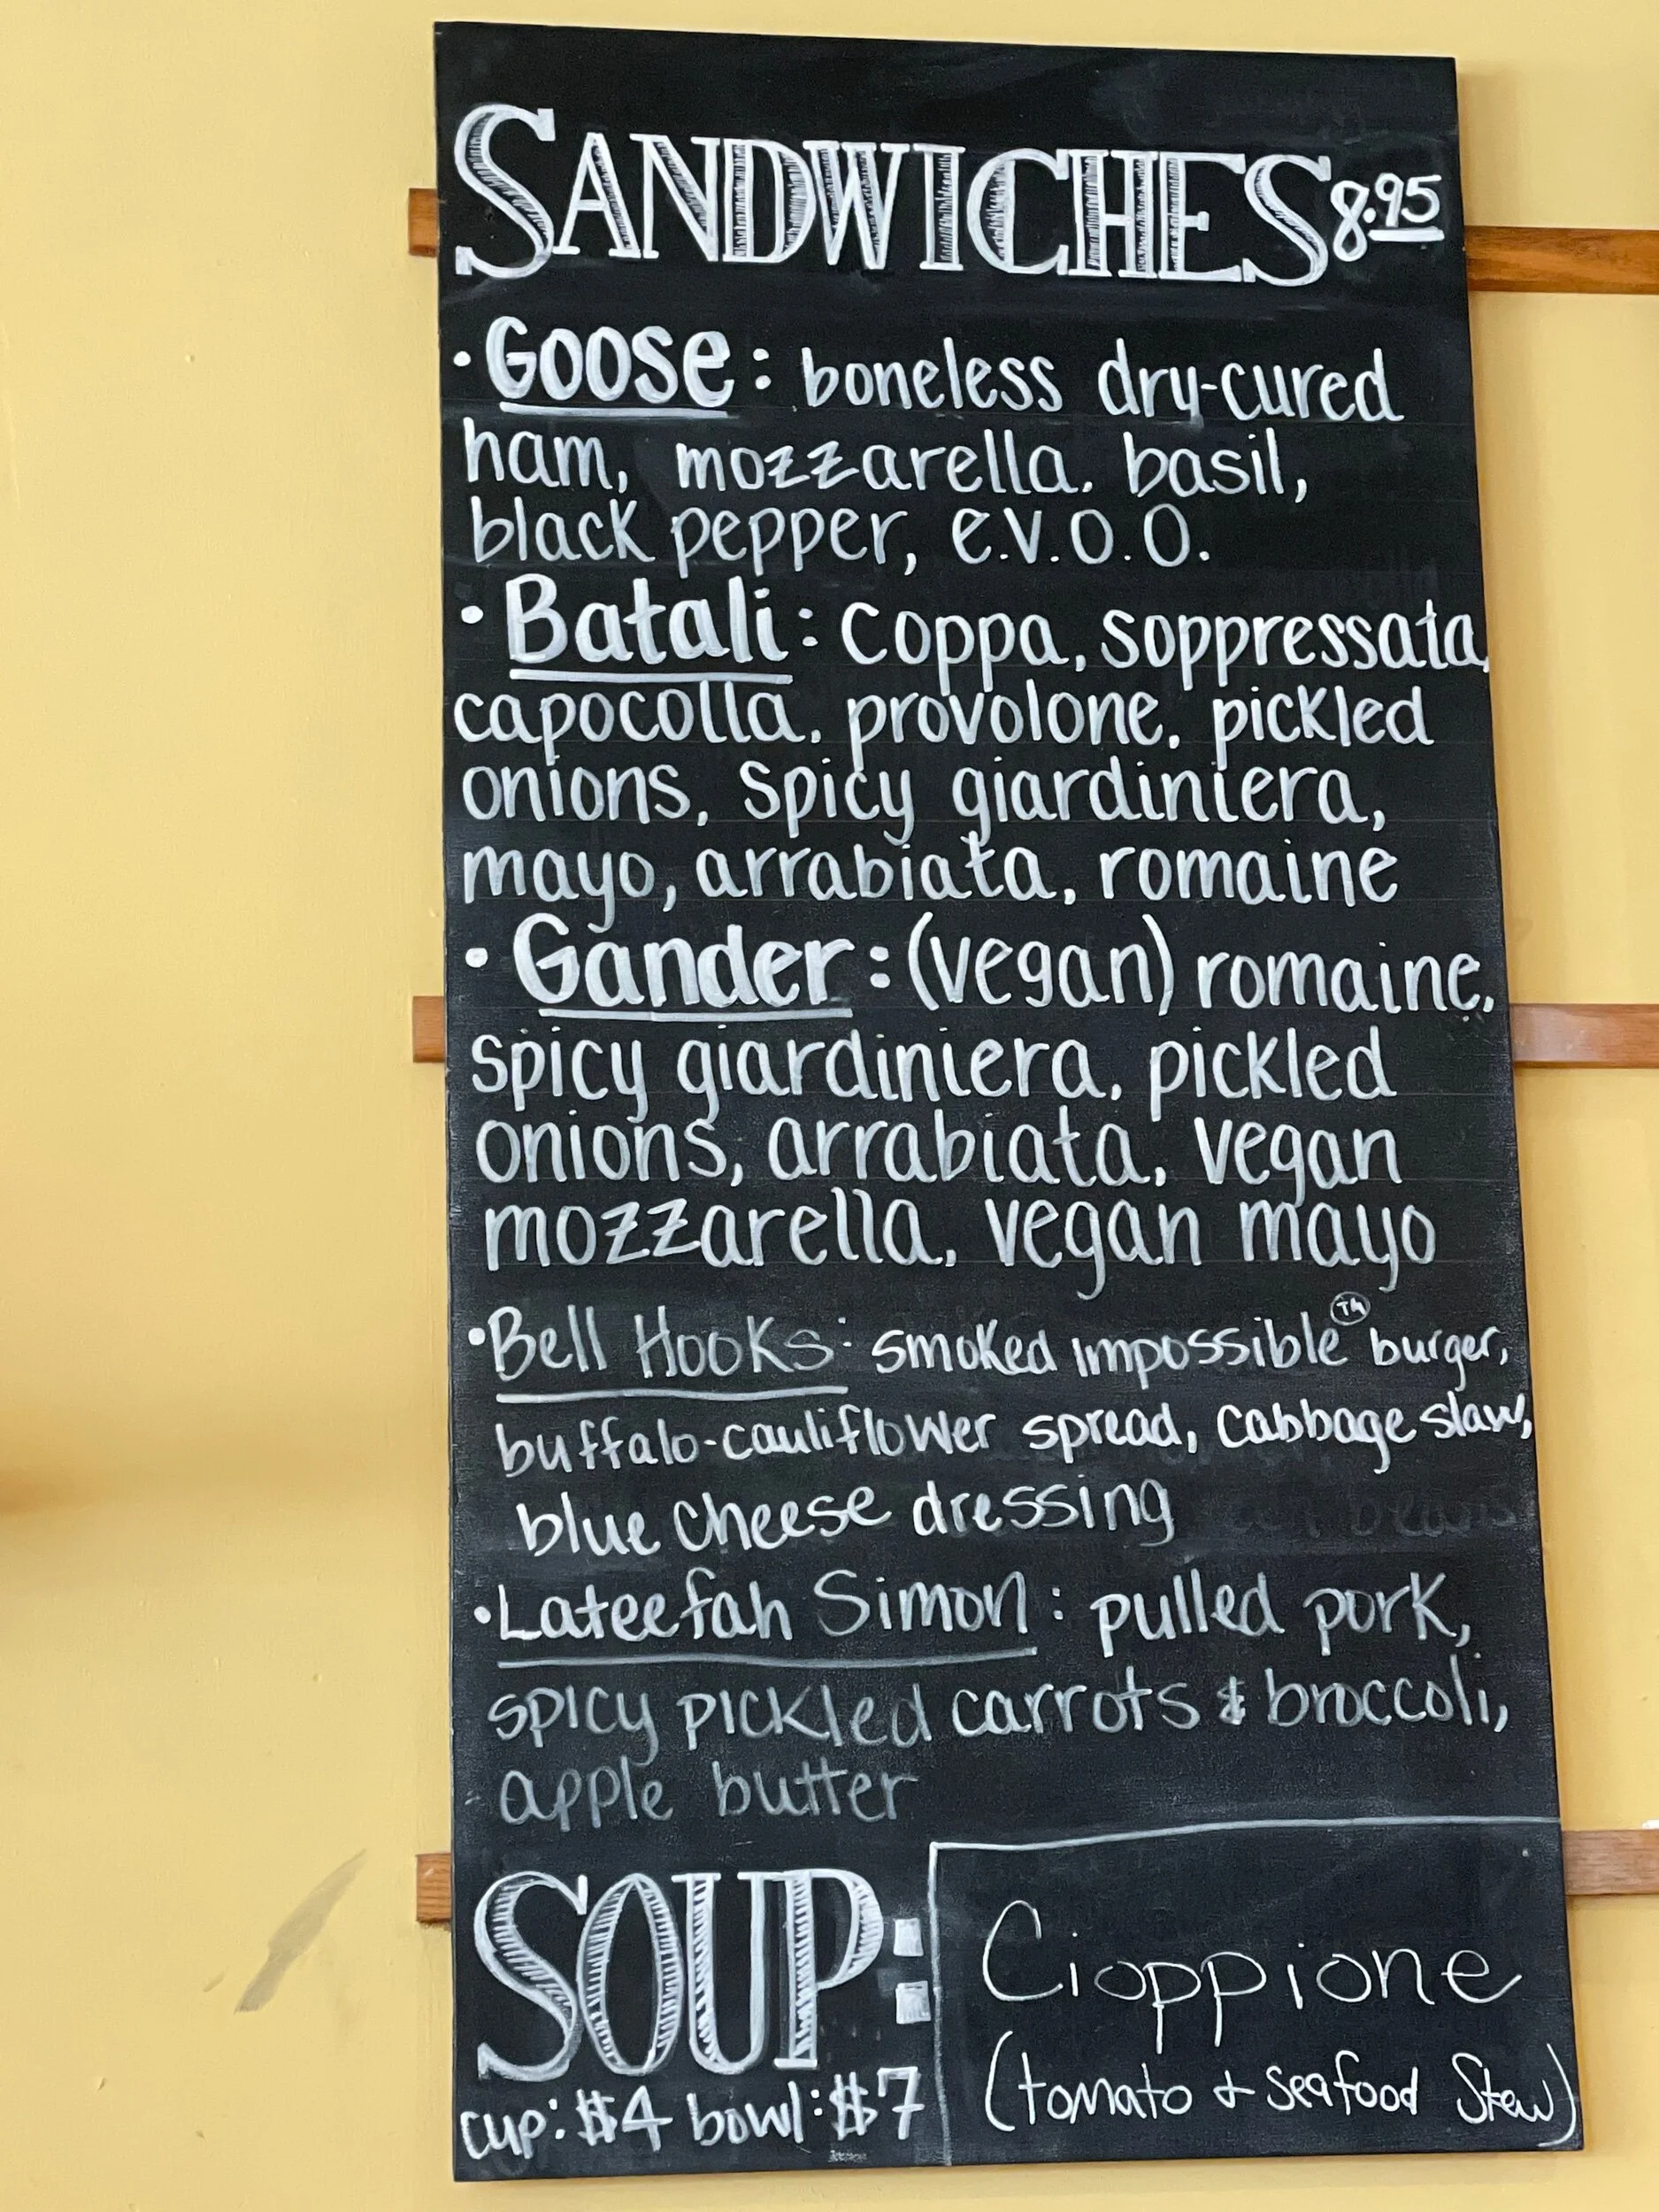 SANDWICHES 8.95
· Goose: boneless dry-cured
ham, mozzarella, basil,
black pepper, e.v.o.o.
· Batali: coppa, soppressata,
capocolla, provolone, pickled
onions, spicy giardiniera,
mayo, arrabiata, romaine
· Gander: (vegan) romaine,
spicy giardiniera, pickled
onions, arrabiata, vegan
mozzarella, vegan mayo
· Bell Hooks: smoked impossible™ burger,
buffalo-cauliflower spread, cabbage slaw,
blue cheese dressing
· Lateefah Simon: pulled pork,
spicy pickled carrots & broccoli,
apple butter
SOUP:
cup: $4 bowl: $7
Cioppione
(tomato + seafood stew)